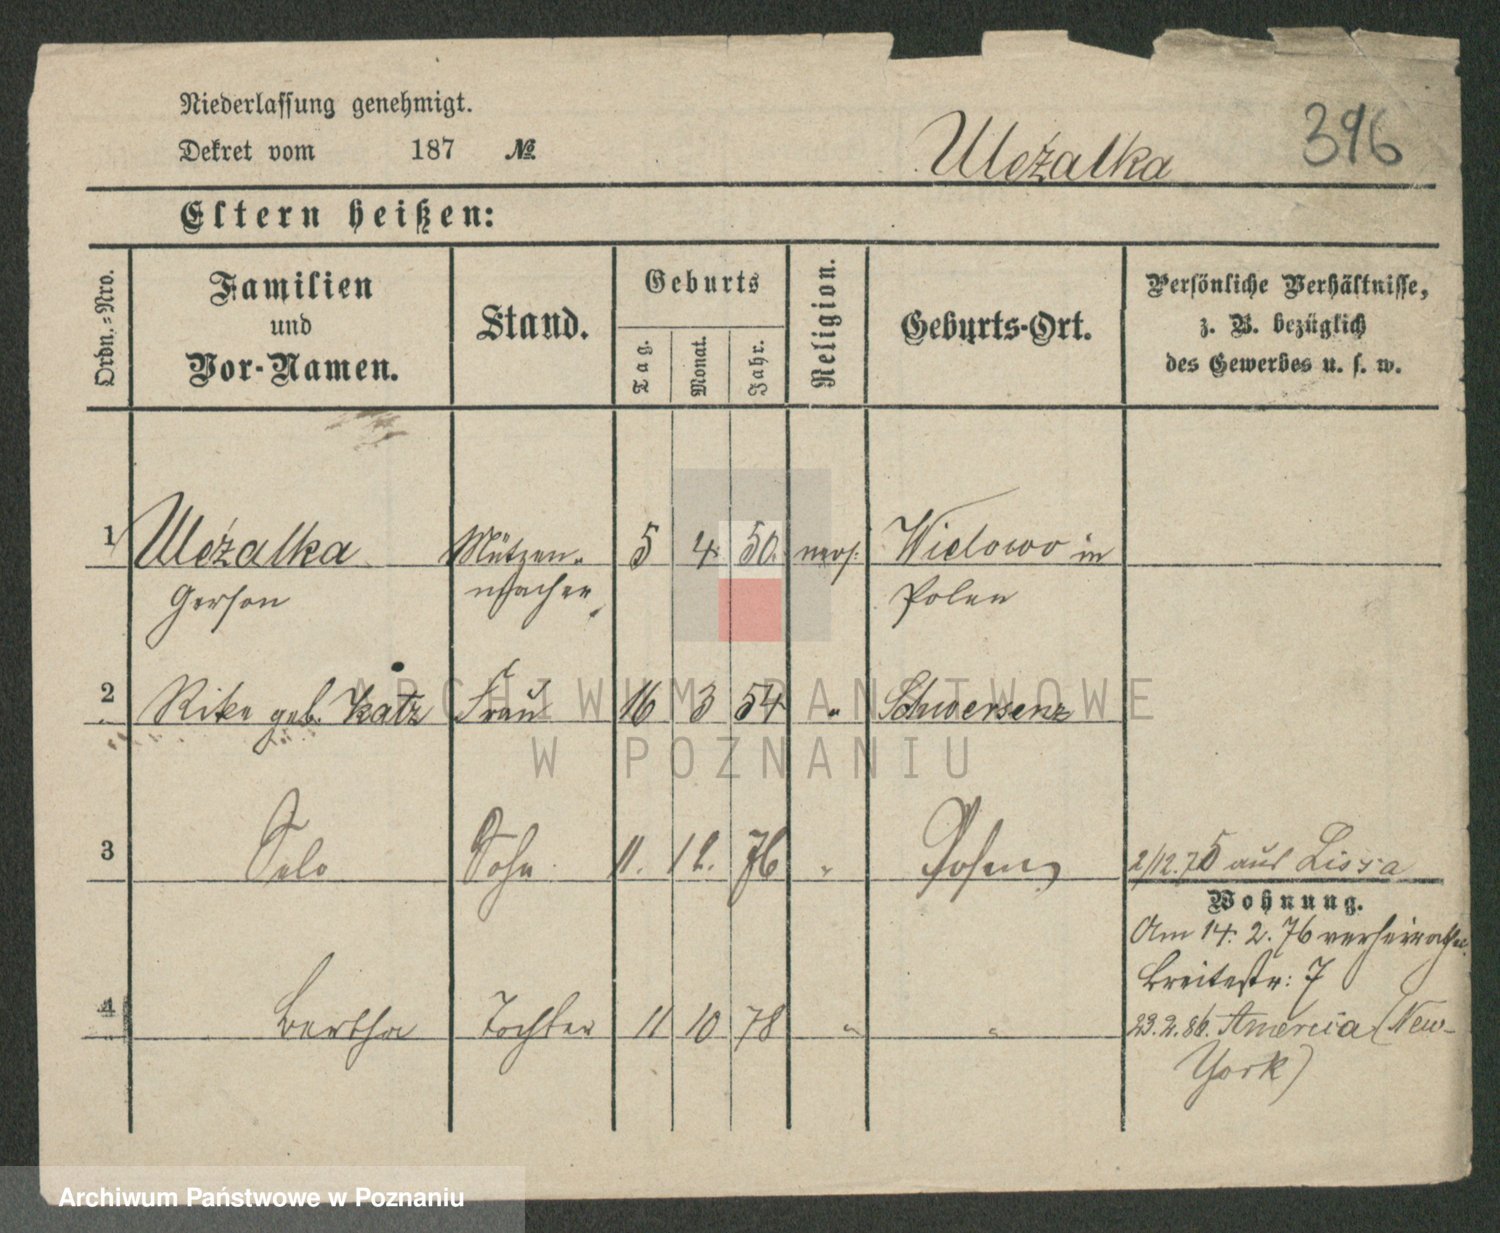 Niederlassung genehmigt.
Dekret vom 187 №
Uležalka 396
Eltern heißen:
Ordn.-Nro.
Familien und Vor-Namen.
Stand.
Geburts
Tag.
Monat.
Jahr.
Religion.
Geburts-Ort.
Persönliche Verhältnisse,
z. B. bezüglich
des Gewerbes u. s. w.
1 Uležalka Mützen- 5 4. 50. mos: in
Gerson macher Polen
2 Rike geb. Katz Frau 16 3 54 " Schwersenz
ARCHIWUM PAŃSTWOWE
W POZNANIU
3 Selo Sohn 11. 12. 76 " Posen 2/12.75 aus Lissa
Wohnung.
Am 14. 2. 76 verheirathet.
Breitestr: 7
4 Bertha Tochter 11 10 78 " " 23.2.86. America (New-
York)
Archiwum Państwowe w Poznaniu